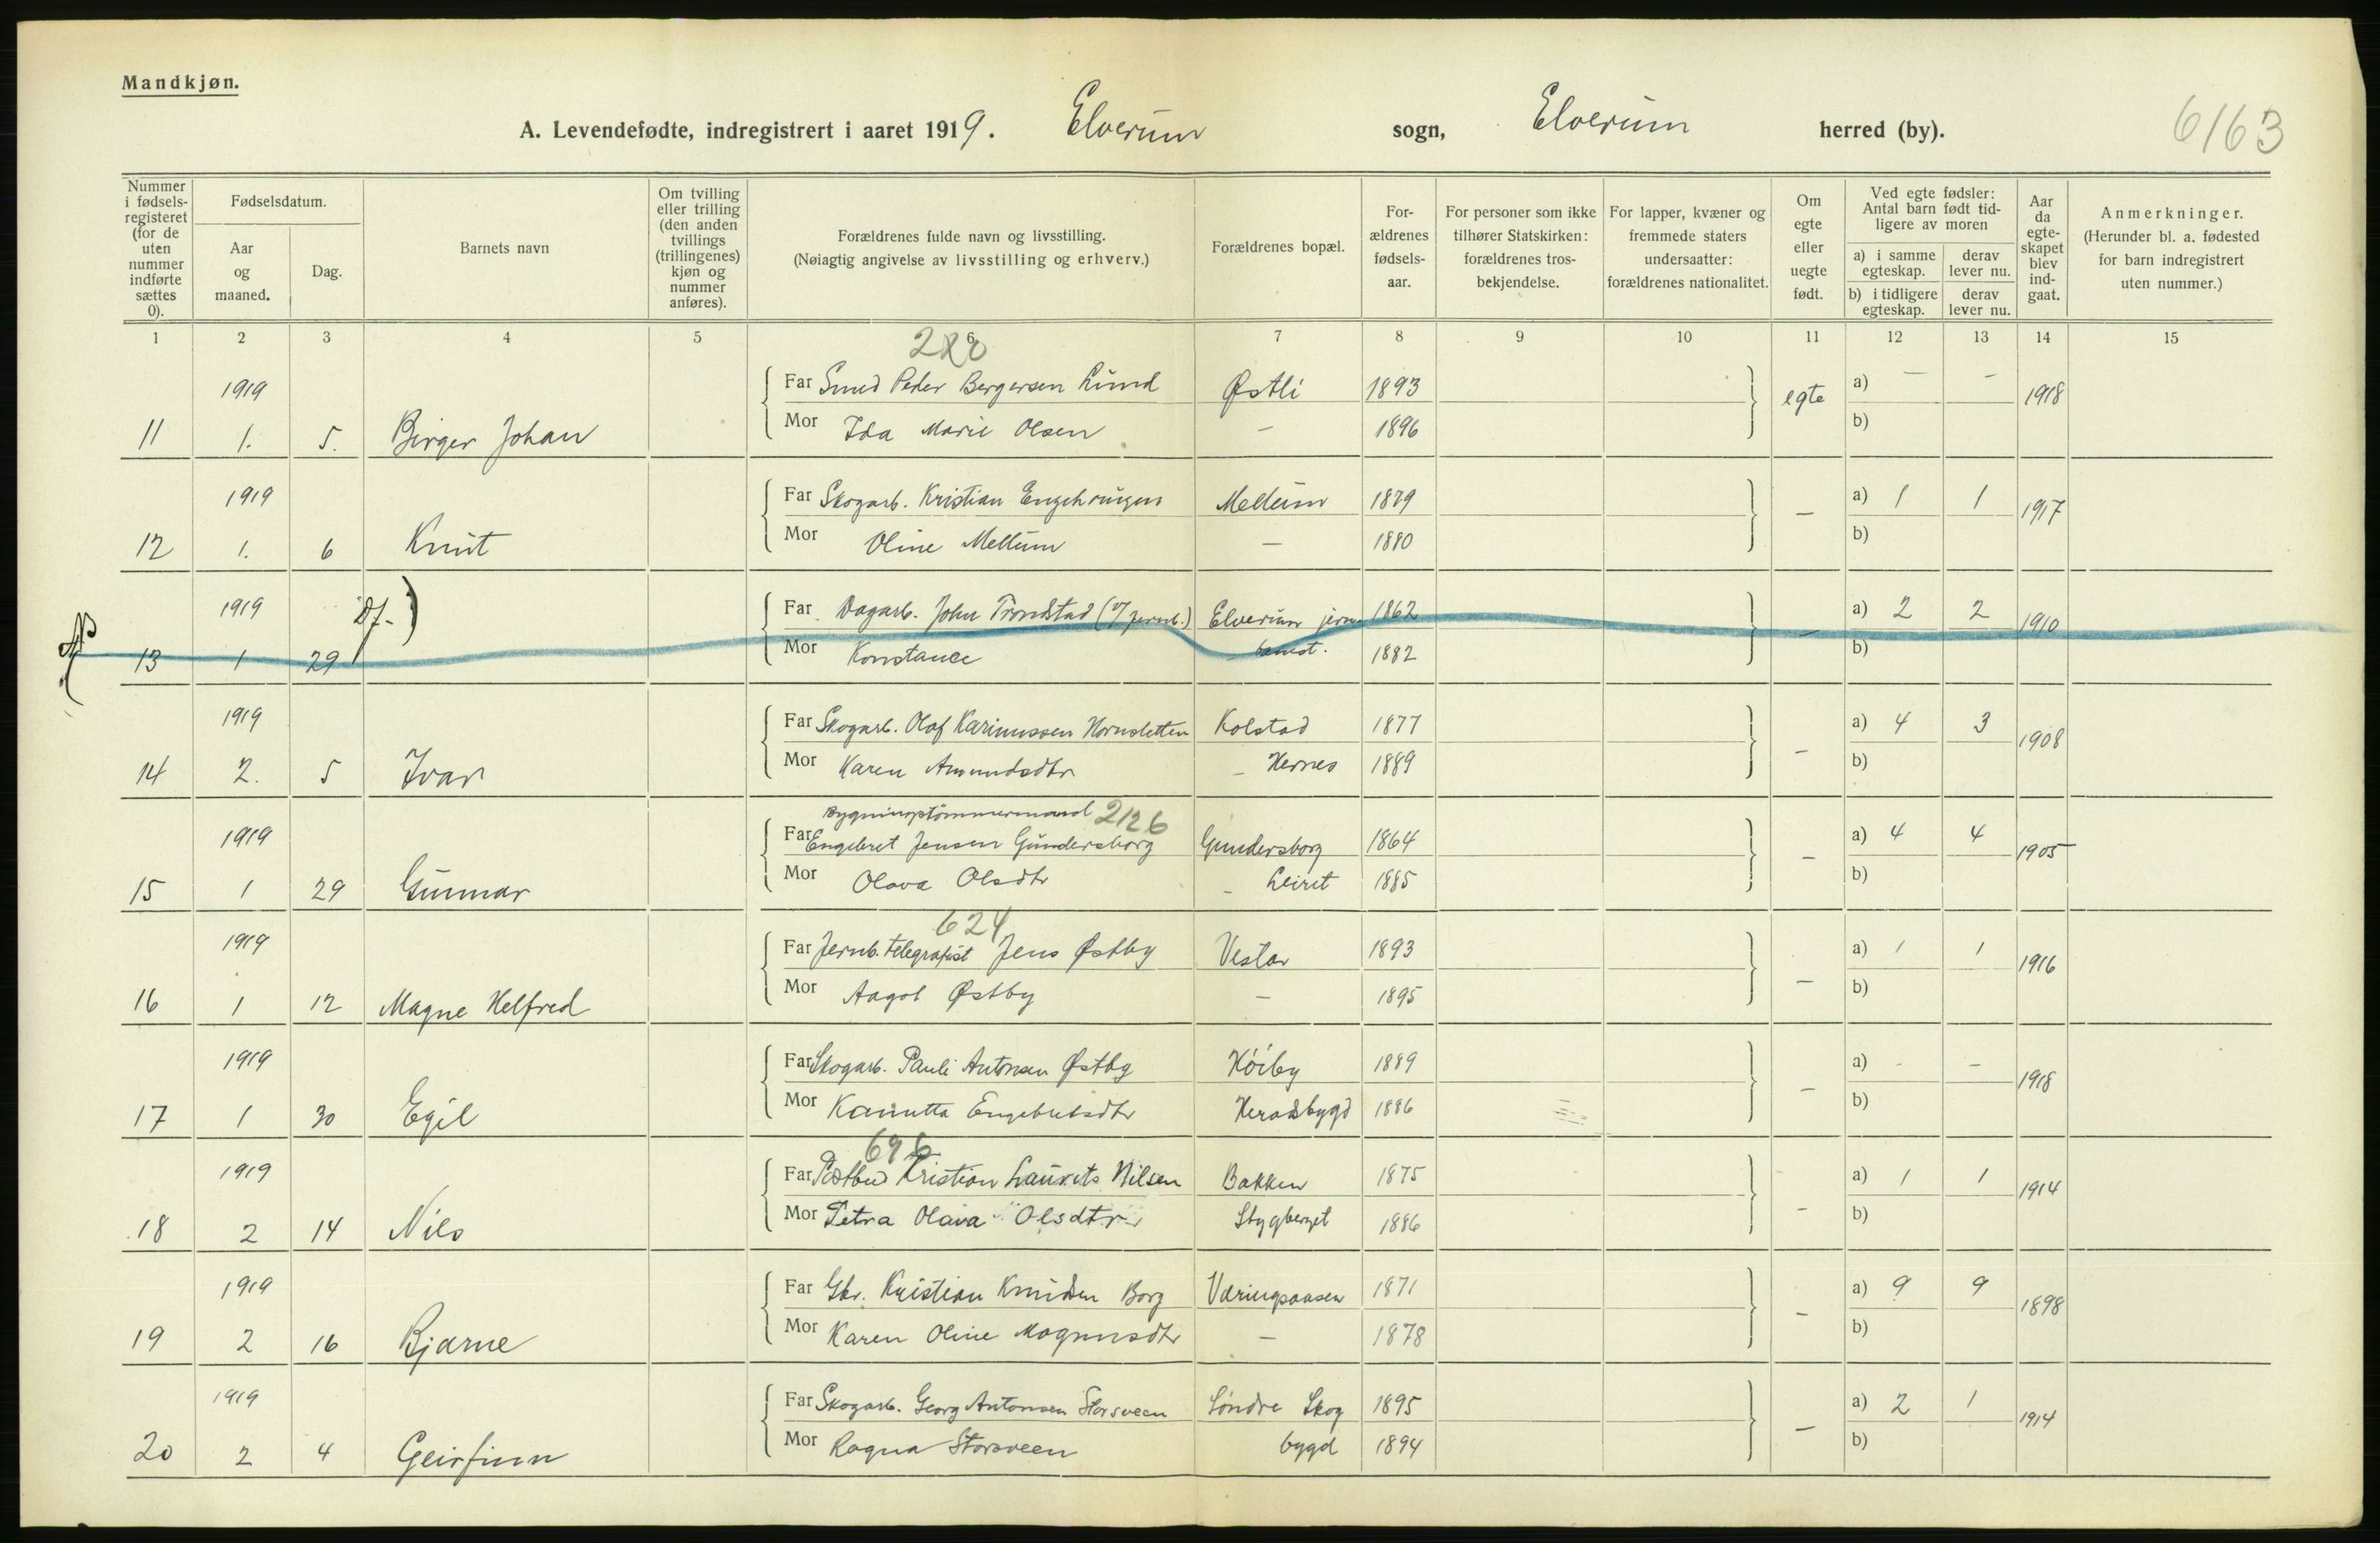 Mandkjøn.
A. Levendefødte, indregistrert i aaret 1919. Elverum sogn, Elverum herred (by).
6163
Nummer i fødsels-registeret (for de uten nummer indførte sættes 0).
Fødselsdatum.
Aar og maaned.
Dag.
Barnets navn
Om tvilling eller trilling (den anden tvillings (trillingenes) kjøn og nummer anføres).
Forældrenes fulde navn og livsstilling.
(Nøiagtig angivelse av livsstilling og erhverv.)
Forældrenes bopæl.
For-ældrenes fødsels-aar.
For personer som ikke tilhører Statskirken: forældrenes tros-bekjendelse.
For lapper, kvæner og fremmede staters undersaatter: forældrenes nationalitet.
Om egte eller uegte født.
Ved egte fødsler: Antal barn født tid-ligere av moren
a) i samme egteskap.
derav lever nu.
b) i tidligere egteskap.
derav lever nu.
Aar da egte-skapet blev ind-gaat.
Anmerkninger.
(Herunder bl. a. fødested for barn indregistrert uten nummer.)
1 2 3 4 5 6 7 8 9 10 11 12 13 14 15
1919 Far Smed Peder Bergersen Lund Østli 1893 egte a) — – 1918
11 1. 5. Birger Johan Mor Ida Marie Olsen — 1896 b)
1919 Far Skogarb. Kristian Mellum 1879 — a) 1 1 1917
12 1. 6 Knut Mor Oline Mellum — 1880 b)
1919 Df.) Far Dagarb. John Trondstad (v/ jernb.) Elverum jern 1862 – a) 2 2 1910
13 1 29 Mor Konstance banest. 1882 b)
1919 Far Skogarb. Olaf Karinussen Hornsletten Kolstad 1877 – a) 4 3 1908
14 2. 5 Ivar Mor Karen Amundsdtr – Hernes 1889 b)
Bygningstømmermand 2126
1919 Far Engebret Jensen Gundersborg Gundersborg 1864 – a) 4 4 1905
15 1 29 Gunnar Mor Olava Olsdtr – Leiret 1885 b)
624
1919 Far Jernb. telegrafist Jens Østby Vestar 1893 — a) 1 1 1916
16 1 12 Magne Helfred Mor Aagot Østby — 1895 b)
1919 Far Skogarb. Pauli Antonsen Østby Høiby 1889 – a) - – 1918
17 1 30 Egil Mor Kanutta Engebretsdtr Heradsbygd 1886 b)
696
1919 Far Postbud Kristian Laurits Nilsen Bakken 1875 – a) 1 1 1914
18 2 14 Nils Mor Petra Olava Olsdtr Stygberget 1886 b)
1919 Far Gbr. Kristian Knudsen Borg Væringsaasen 1871 – a) 9 9 1898
19 2 16 Bjarne Mor Karen Oline Magnusdtr — 1878 b)
1919 Far Skogarb. Georg Antonsen Storsveen Søndre Skog 1895 — a) 2 1 1914
20 2 4 Geirfinn Mor Ragna Storsveen bygd 1894 b)